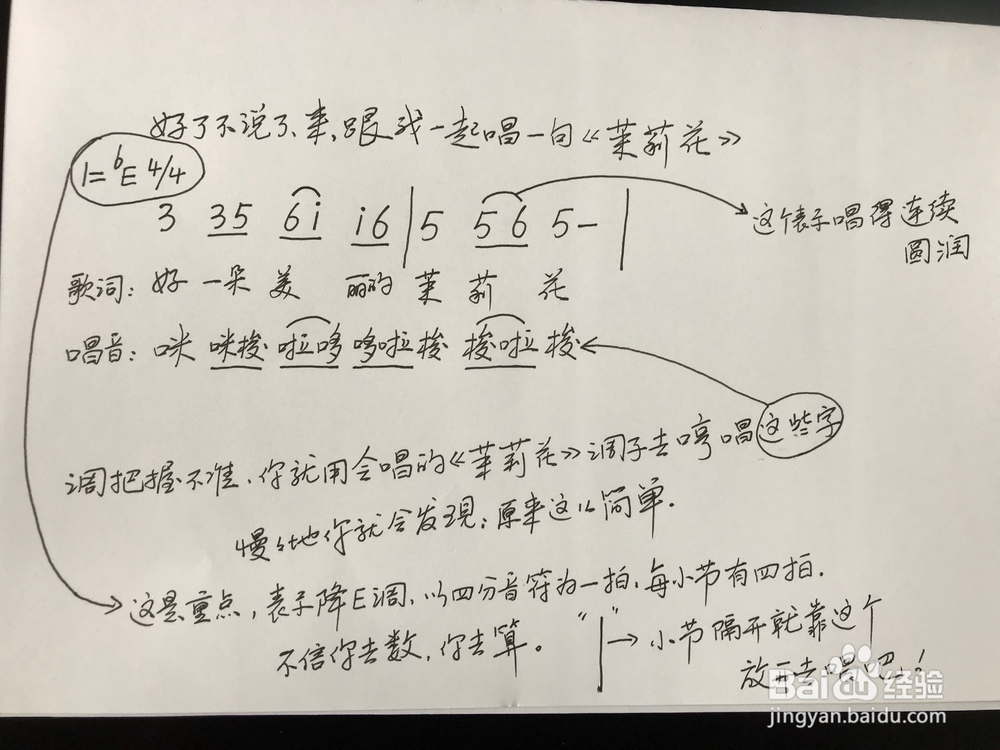 好了不说了,来,跟我一起唱一句《茉莉花》
1=ᵇE 4/4
3 35 6i i6 | 5 56 5- |
这个表示唱得连续
圆润
歌词: 好 一朵 美 丽的 茉 莉 花
唱音: 咪 咪梭 啦哆 哆啦 梭 梭啦 梭
调把握不准,你就用会唱的《茉莉花》调子去哼唱这些字
慢々地你就会发现:原来这么简单.
这是重点,表示降E调,以四分音符为一拍,每小节有四拍.
不信你去数,你去算。 "|"→小节隔开就靠这个
放开去唱吧!
Baidu经验
jingyan.baidu.com